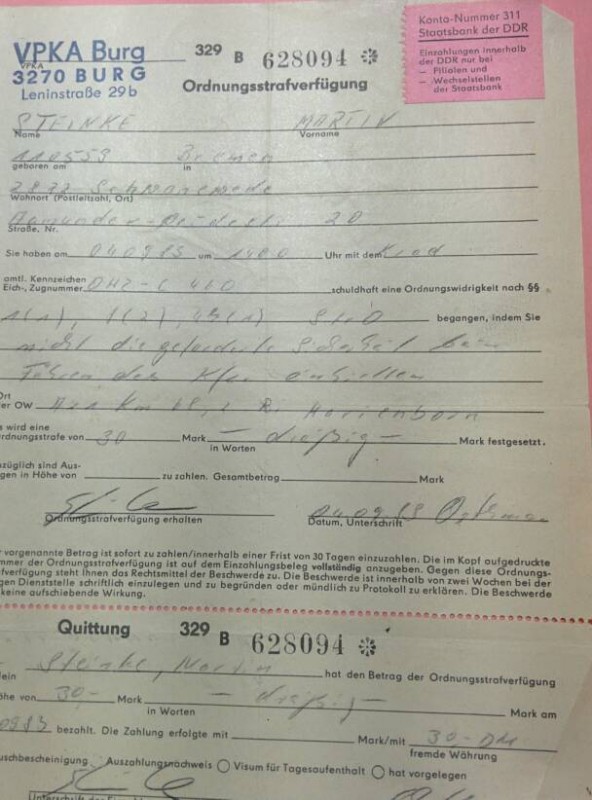 VPKA Burg
VPKA
3270 BURG
Leninstraße 29b
329 B 628094
Ordnungsstrafverfügung
Konto-Nummer 311
Staatsbank der DDR
Einzahlungen innerhalb
der DDR nur bei
— Filialen und
— Wechselstellen
der Staatsbank
STEINKE MARTIN
Name Vorname
110559 Bremen
geboren am in
2822 Schwanewede
Wohnort (Postleitzahl, Ort)
20
Straße, Nr.
Sie haben am 040983 um 1400 Uhr mit dem Krad
amtl. Kennzeichen
Eich-, Zugnummer OHZ-C 460 schuldhaft eine Ordnungswidrigkeit nach §§
1(1), 1(2), StVO begangen, indem Sie
nicht die geforderte Sicherheit beim
Führen des Kfz einhielten
Ort
er OW km Marienborn
s wird eine
rdnungsstrafe von 30 Mark — dreißig — Mark festgesetzt.
in Worten
züglich sind Aus-
gen in Höhe von — zu zahlen. Gesamtbetrag Mark
04.09.83
Ordnungsstrafverfügung erhalten Datum, Unterschrift
r vorgenannte Betrag ist sofort zu zahlen/innerhalb einer Frist von 30 Tagen einzuzahlen. Die im Kopf aufgedruckte
mmer der Ordnungsstrafverfügung ist auf dem Einzahlungsbeleg vollständig anzugeben. Gegen diese Ordnungs-
afverfügung steht Ihnen das Rechtsmittel der Beschwerde zu. Die Beschwerde ist innerhalb von zwei Wochen bei der
gen Dienststelle schriftlich einzulegen und zu begründen oder mündlich zu Protokoll zu erklären. Die Beschwerde
keine aufschiebende Wirkung.
Quittung 329 B 628094
lein Steinke, Martin hat den Betrag der Ordnungsstrafverfügung
öhe von 30,- Mark — dreißig — Mark am
in Worten
0983 bezahlt. Die Zahlung erfolgte mit Mark/mit 30,- DM
fremde Währung
uschbescheinigung Auszahlungsnachweis Visum für Tagesaufenthalt hat vorgelegen